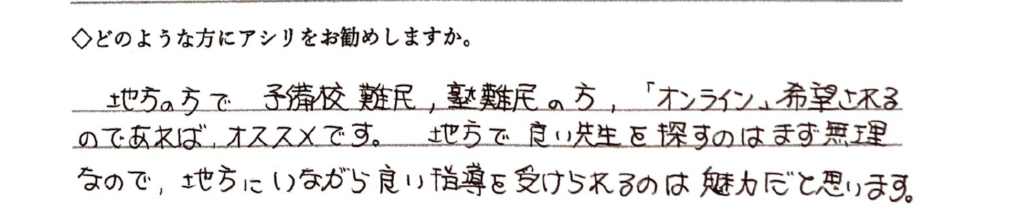 ◇どのような方にアシリをお勧めしますか。
地方の方で 予備校難民，塾難民の方，「オンライン」希望される
のであれば，オススメです。 地方で良い先生を探すのはまず無理
なので，地方にいながら良い指導を受けられるのは魅力だと思います。